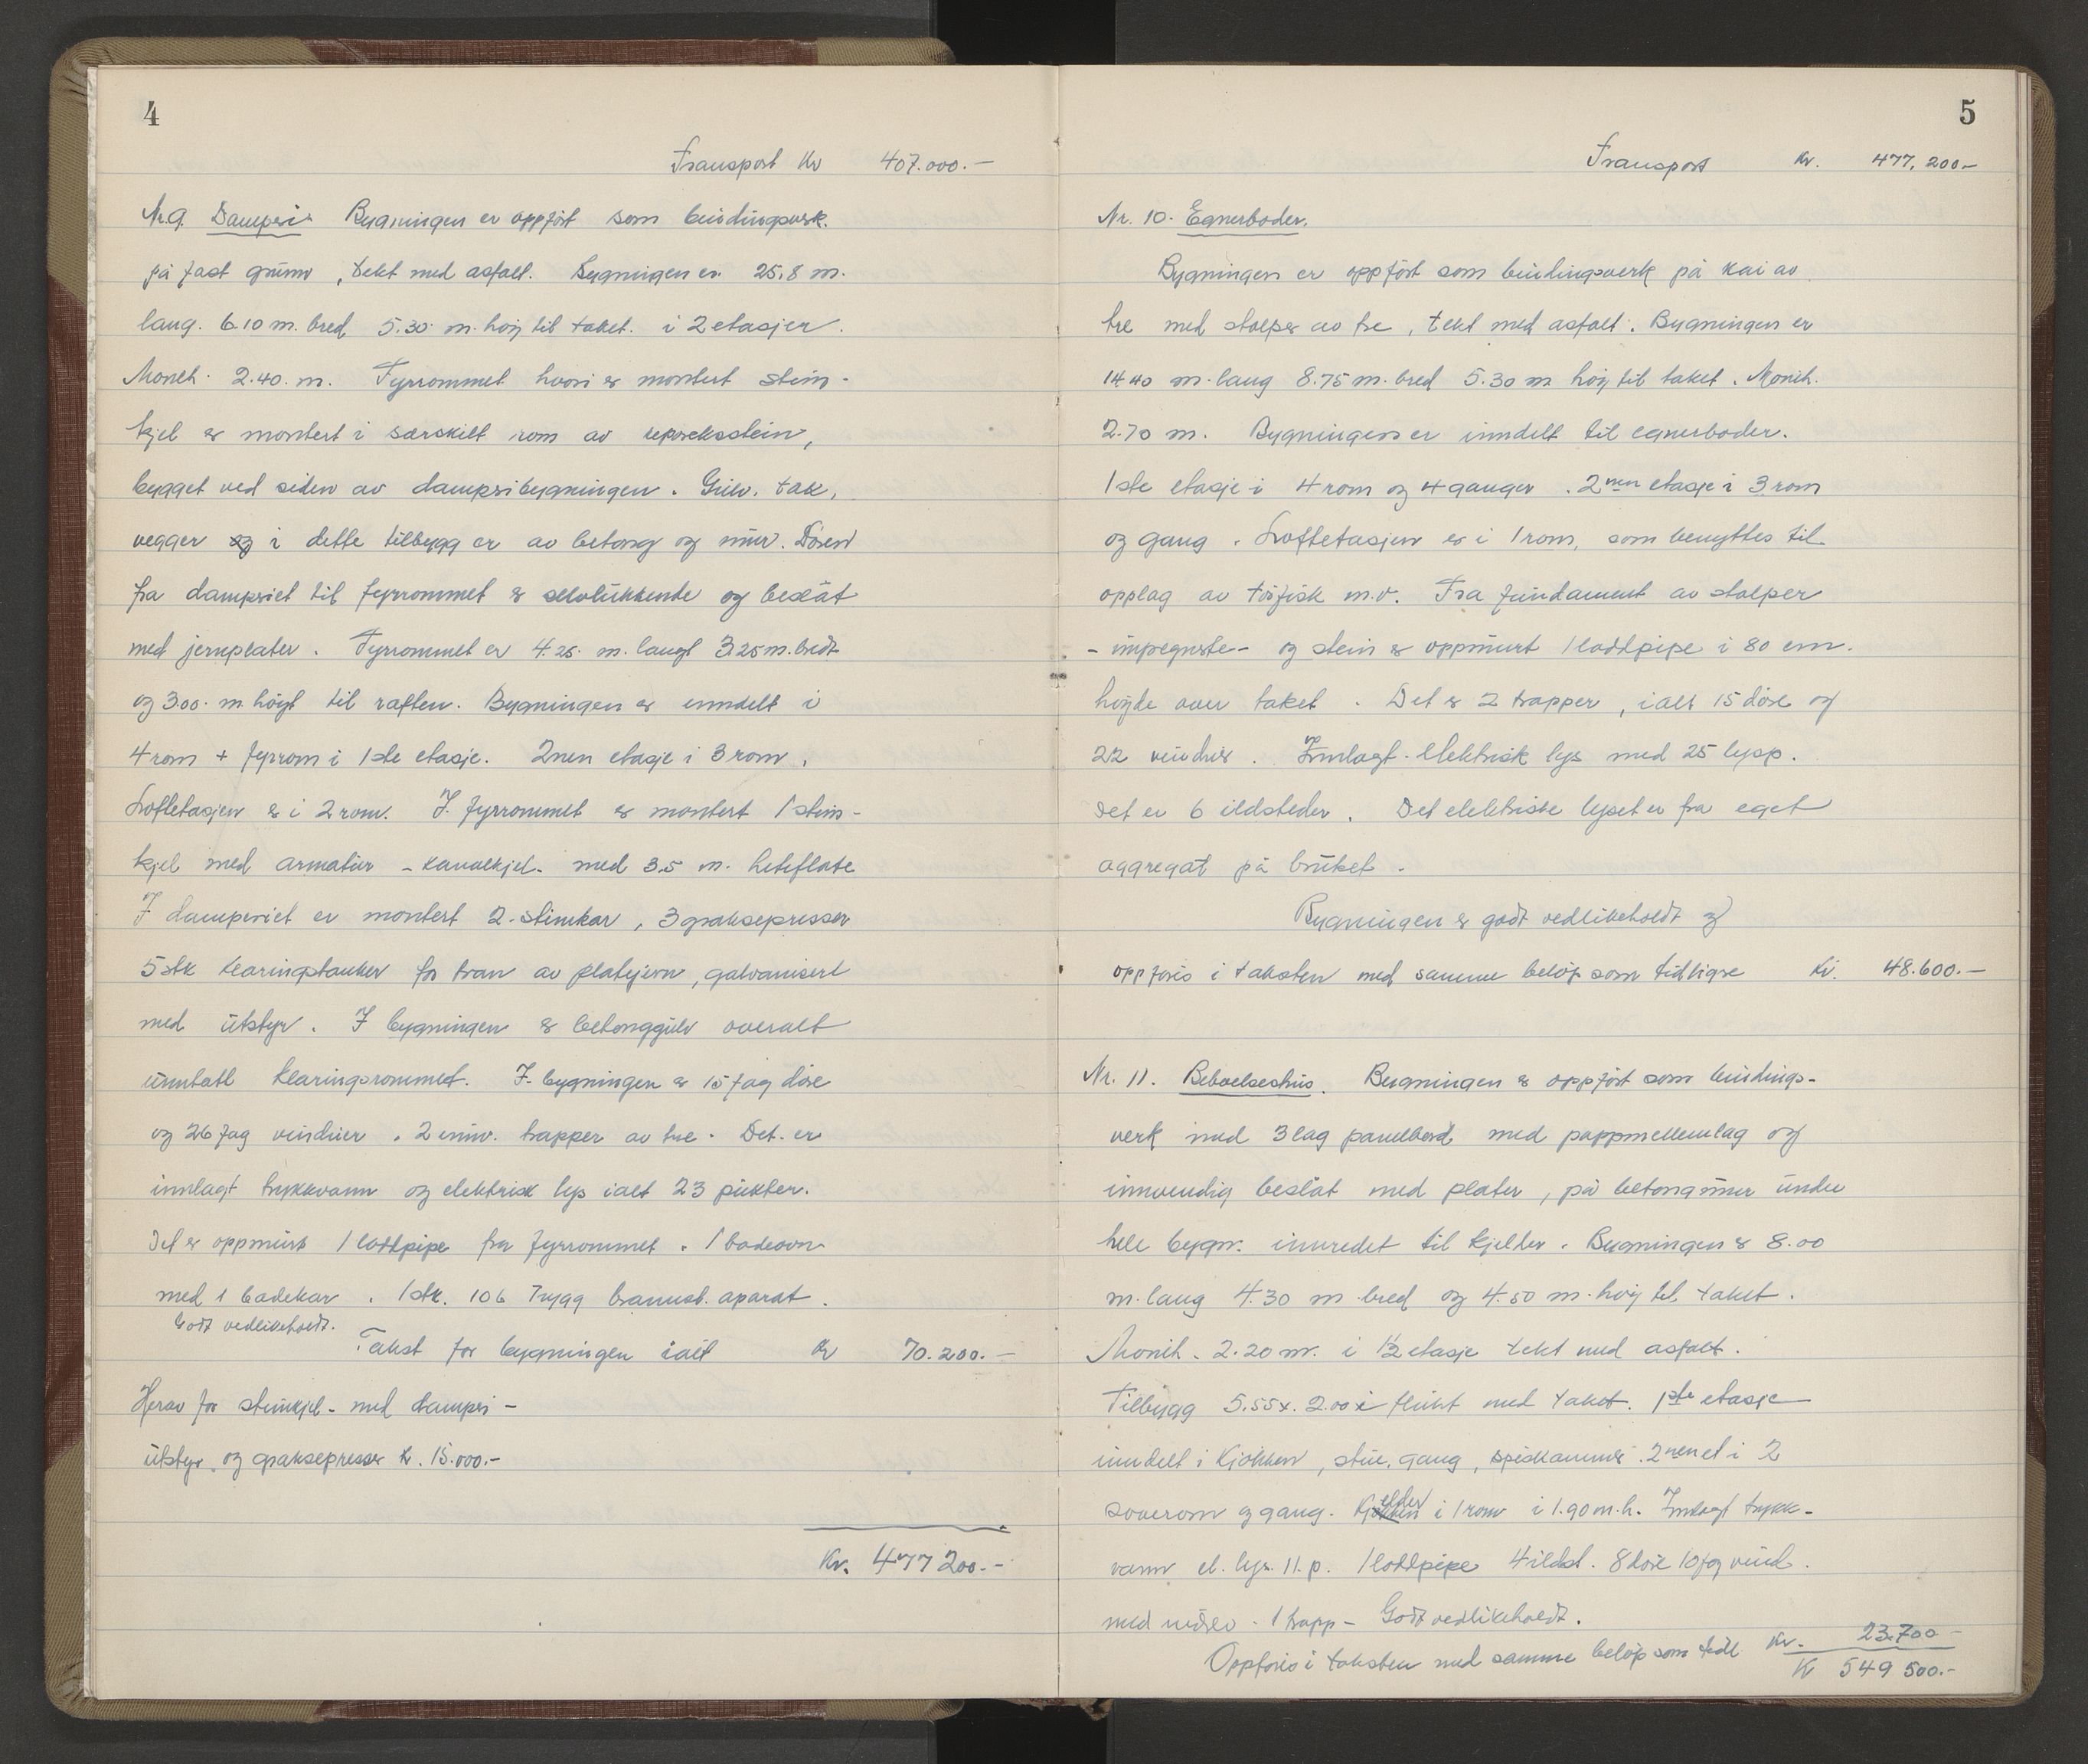 4
Transport Kr 407.000.-
Nr. 9. Damperi Bygningen er oppfört som bindingsverk.
på fast grunn, tekt med asfalt. Bygningen er 25.8 m.
lang. 6.10 m. bred 5.30 m. höj til taket. i 2 etasjer.
Möneh. 2.40. m. Fyrrommet hvori er montert stim-
kjel er montert i særskilt rom av
bygget ved siden av dampribygningen. Gulv. tak,
vegger og i dette tilbygg er av betong og mur. Dören
fra damperiet til fyrrommet er selvlukkende og beslåt
med jernplater. Fyrrommet er 4.25. m. langt 3.25 m. bredt
og 3.00. m. höyt til raften. Bygningen er inndelt i
4 rom + fyrrom i 1ste etasje. 2nen etasje i 3 rom,
Loftetasjen er i 2 rom. I fyrrommet er montert 1 stim-
kjel med armatur - kanalkjel - med 3.5 m. heteflate
I damperiet er montert 2 stimkar, 3 graksepresser
5 stk klaringstanker for tran av platejern, galvanisert
med utstyr. I bygningen er betonggulv overalt
unntatt klaringsrommet. I bygningen er 15 fag döre
og 26 fag vinduer. 2 innv. trapper av tre. Det er
innlagt trykkvann og elektrisk lys ialt 23 punkter.
Det er oppmurt 1 loddpipe fra fyrrommet. 1 badeovn
med 1 badekar. 1 stk. 106 Trygg brannsl. aparat.
Godt vedlikeholdt.
Takst for bygningen ialt Kr 70.200.-
Herav for stimkjel - med damperi-
utstyr og graksepresser kr. 15.000.-
Kr. 477 200.-
5
Transport Kr. 477.200-
Nr. 10. Egnerboder.
Bygningen er oppfört som bindingsverk på kai av
tre med stolper av tre, tekt med asfalt. Bygningen er
14.40 m. lang 8.75 m. bred 5.30 m höj til taket. Möneh.
2.70 m. Bygningen er inndelt til egnerboder.
1ste etasje i 4 rom og 4 ganger. 2nen etasje i 3 rom
og gang. Loftetasjen er i 1 rom, som benyttes til
opplag av törfisk m.v. Fra fundament av stolper
- impregnerte - og stein er oppmurt 1 loddpipe i 80 cm.
höyde over taket. Det er 2 trapper, ialt 15 döre og
22 vinduer. Innlagt elektrisk lys med 25 lysp.
Det er 6 ildsteder. Det elektriske lyset er fra eget
aggregat på bruket.
Bygningen er godt vedlikeholdt og
oppföres i taksten med samme belöp som tidligre Kr. 48.600.-
Nr. 11. Beboelseshus. Bygningen er oppfört som bindings-
verk med 3 lag panelbord med pappmellemlag og
innvendig beslåt med plater, på betongmur under
hele bygn. innredet til kjelder. Bygningen er 8.00
m. lang 4.30 m bred og 4.50 m. höj til taket.
Möneh. 2.20 m. i 1½ etasje tekt med asfalt.
Tilbygg 5.55 x 2.00 i flukt med taket. 1ste etasje
inndelt i kjökken, stue, gang, spiskammer. 2nen et i 2
soverom og gang. Kjelder i 1 rom i 1.90 m. h. Innlagt trykk-
vann el. lys. 11. p. 1 loddpipe 4 ildst. 8 döre 10 fag vind.
1 trapp - Godt vedlikeholdt.
Oppföres i taksten med samme belöp som tidl Kr. 23.700-
Kr 549 500.-